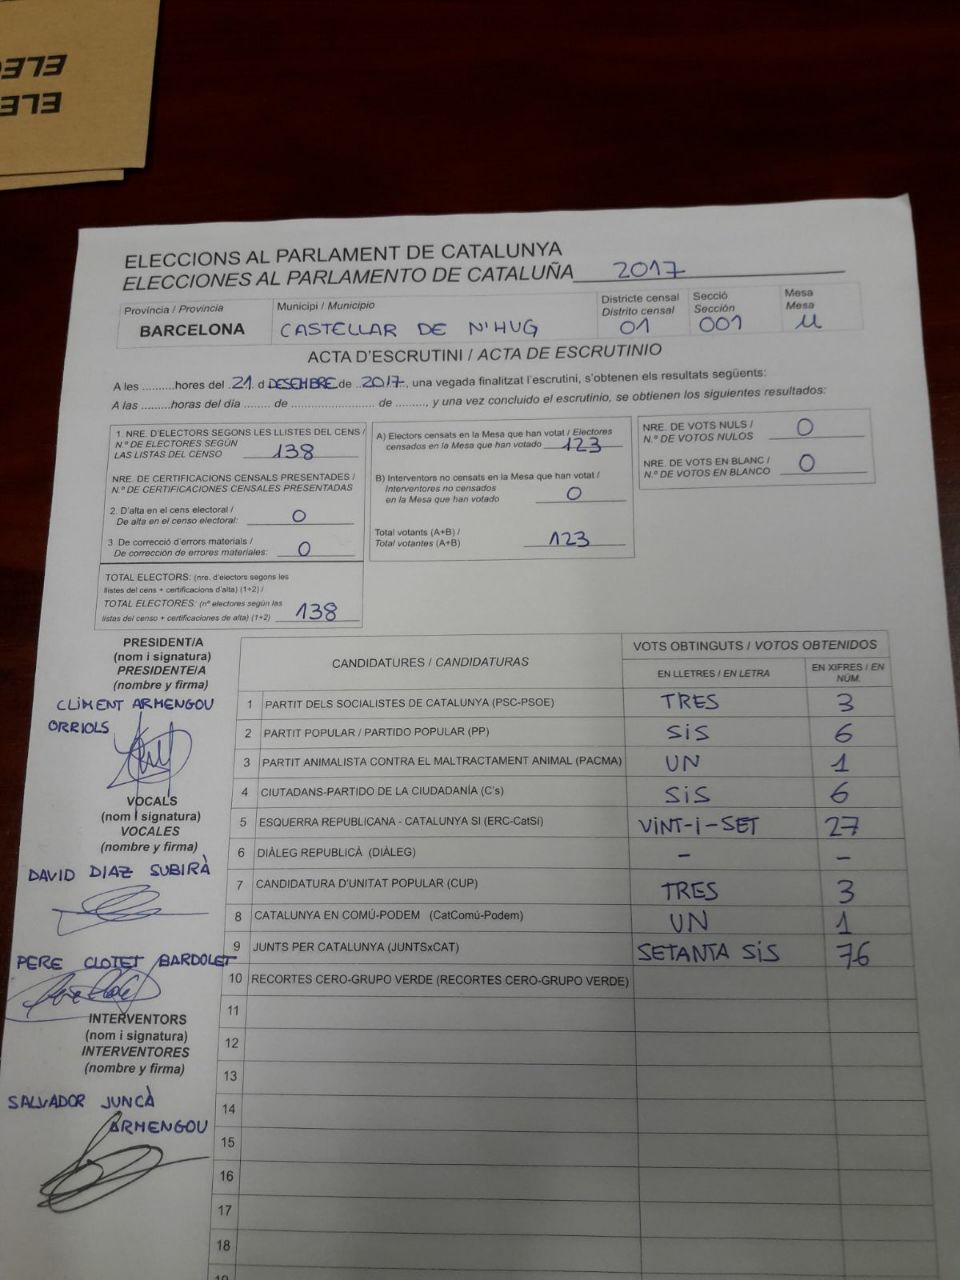 ELE
ELE
ELECCIONS AL PARLAMENT DE CATALUNYA
ELECCIONES AL PARLAMENTO DE CATALUÑA 2017
Província / Provincia
BARCELONA
Municipi / Municipio
CASTELLAR DE N'HUG
Districte censal
Distrito censal
01
Secció
Sección
001
Mesa
Mesa
U
ACTA D'ESCRUTINI / ACTA DE ESCRUTINIO
A les ..........hores del 21 d DESEMBRE de 2017, una vegada finalitzat l'escrutini, s'obtenen els resultats següents:
A las .........horas del día ....... de .................... de ........., y una vez concluido el escrutinio, se obtienen los siguientes resultados:
1. NRE. D'ELECTORS SEGONS LES LLISTES DEL CENS /
N.º DE ELECTORES SEGÚN
LAS LISTAS DEL CENSO 138
NRE. DE CERTIFICACIONS CENSALS PRESENTADES /
N.º DE CERTIFICACIONES CENSALES PRESENTADAS
2. D'alta en el cens electoral /
De alta en el censo electoral: 0
3. De correcció d'errors materials /
De corrección de errores materiales: 0
TOTAL ELECTORS: (nre. d'electors segons les
llistes del cens + certificacions d'alta) (1+2) /
TOTAL ELECTORES: (nº electores según las
listas del censo + certificaciones de alta) (1+2) 138
A) Electors censats en la Mesa que han votat / Electores
censados en la Mesa que han votado 123
B) Interventors no censats en la Mesa que han votat /
Interventores no censados
en la Mesa que han votado 0
Total votants (A+B) /
Total votantes (A+B) 123
NRE. DE VOTS NULS /
N.º DE VOTOS NULOS 0
NRE. DE VOTS EN BLANC /
N.º DE VOTOS EN BLANCO 0
PRESIDENT/A
(nom i signatura)
PRESIDENTE/A
(nombre y firma)
CLIMENT ARMENGOU
ORRIOLS
VOCALS
(nom i signatura)
VOCALES
(nombre y firma)
DAVID DIAZ SUBIRÀ
PERE CLOTET BARDOLET
INTERVENTORS
(nom i signatura)
INTERVENTORES
(nombre y firma)
SALVADOR JUNCÀ
ARMENGOU
CANDIDATURES / CANDIDATURAS
VOTS OBTINGUTS / VOTOS OBTENIDOS
EN LLETRES / EN LETRA
EN XIFRES / EN
NÚM.
1 PARTIT DELS SOCIALISTES DE CATALUNYA (PSC-PSOE) TRES 3
2 PARTIT POPULAR / PARTIDO POPULAR (PP) SiS 6
3 PARTIT ANIMALISTA CONTRA EL MALTRACTAMENT ANIMAL (PACMA) UN 1
4 CIUTADANS-PARTIDO DE LA CIUDADANÍA (C's) SiS 6
5 ESQUERRA REPUBLICANA - CATALUNYA SI (ERC-CatSí) VINT-i-SET 27
6 DIÀLEG REPUBLICÀ (DIÀLEG) – –
7 CANDIDATURA D'UNITAT POPULAR (CUP) TRES 3
8 CATALUNYA EN COMÚ-PODEM (CatComú-Podem) UN 1
9 JUNTS PER CATALUNYA (JUNTSxCAT) SETANTA SiS 76
10 RECORTES CERO-GRUPO VERDE (RECORTES CERO-GRUPO VERDE)
11
12
13
14
15
16
17
18
19